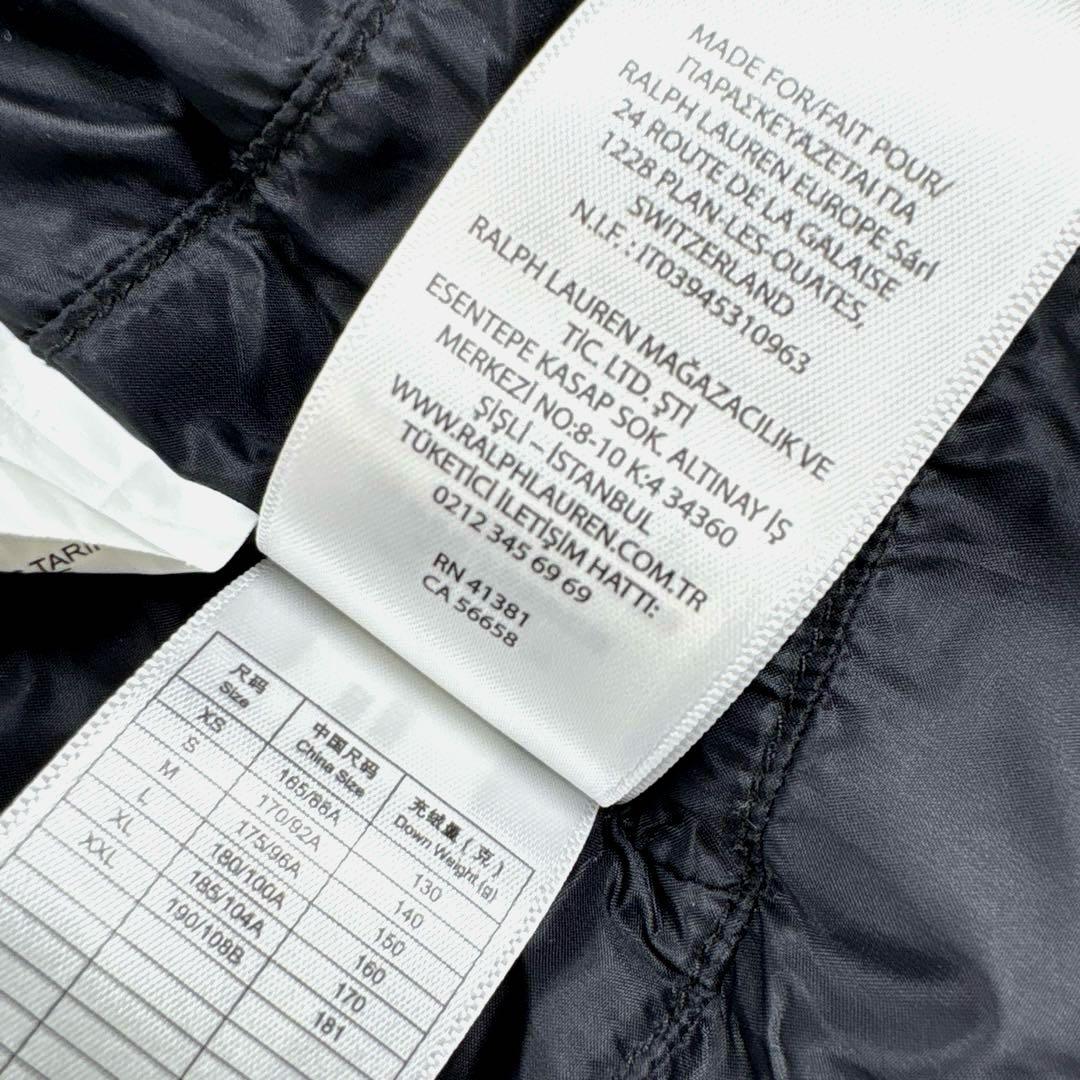 MADE FOR/FAIT POUR/
ΠΑΡΑΣΚΕΥΑΖΕΤΑΙ ΓΙΑ
RALPH LAUREN EUROPE Sárl
24 ROUTE DE LA GALAISE
1228 PLAN-LES-OUATES,
SWITZERLAND
N.I.F. : IT03945310963
RALPH LAUREN MAĞAZACILIK VE
TİC. LTD. ŞTİ
ESENTEPE KASAP SOK. ALTINAY İŞ
MERKEZİ NO:8-10 K:4 34360
ŞİŞLİ – İSTANBUL
WWW.RALPHLAUREN.COM.TR
TÜKETİCİ İLETİŞİM HATTI:
0212 345 69 69
RN 41381
CA 56658
尺码 中国尺码 充绒量(克)
Size China Size Down Weight (g)
XS 165/88A 130
S 170/92A 140
M 175/96A 150
L 180/100A 160
XL 185/104A 170
XXL 190/108B 181